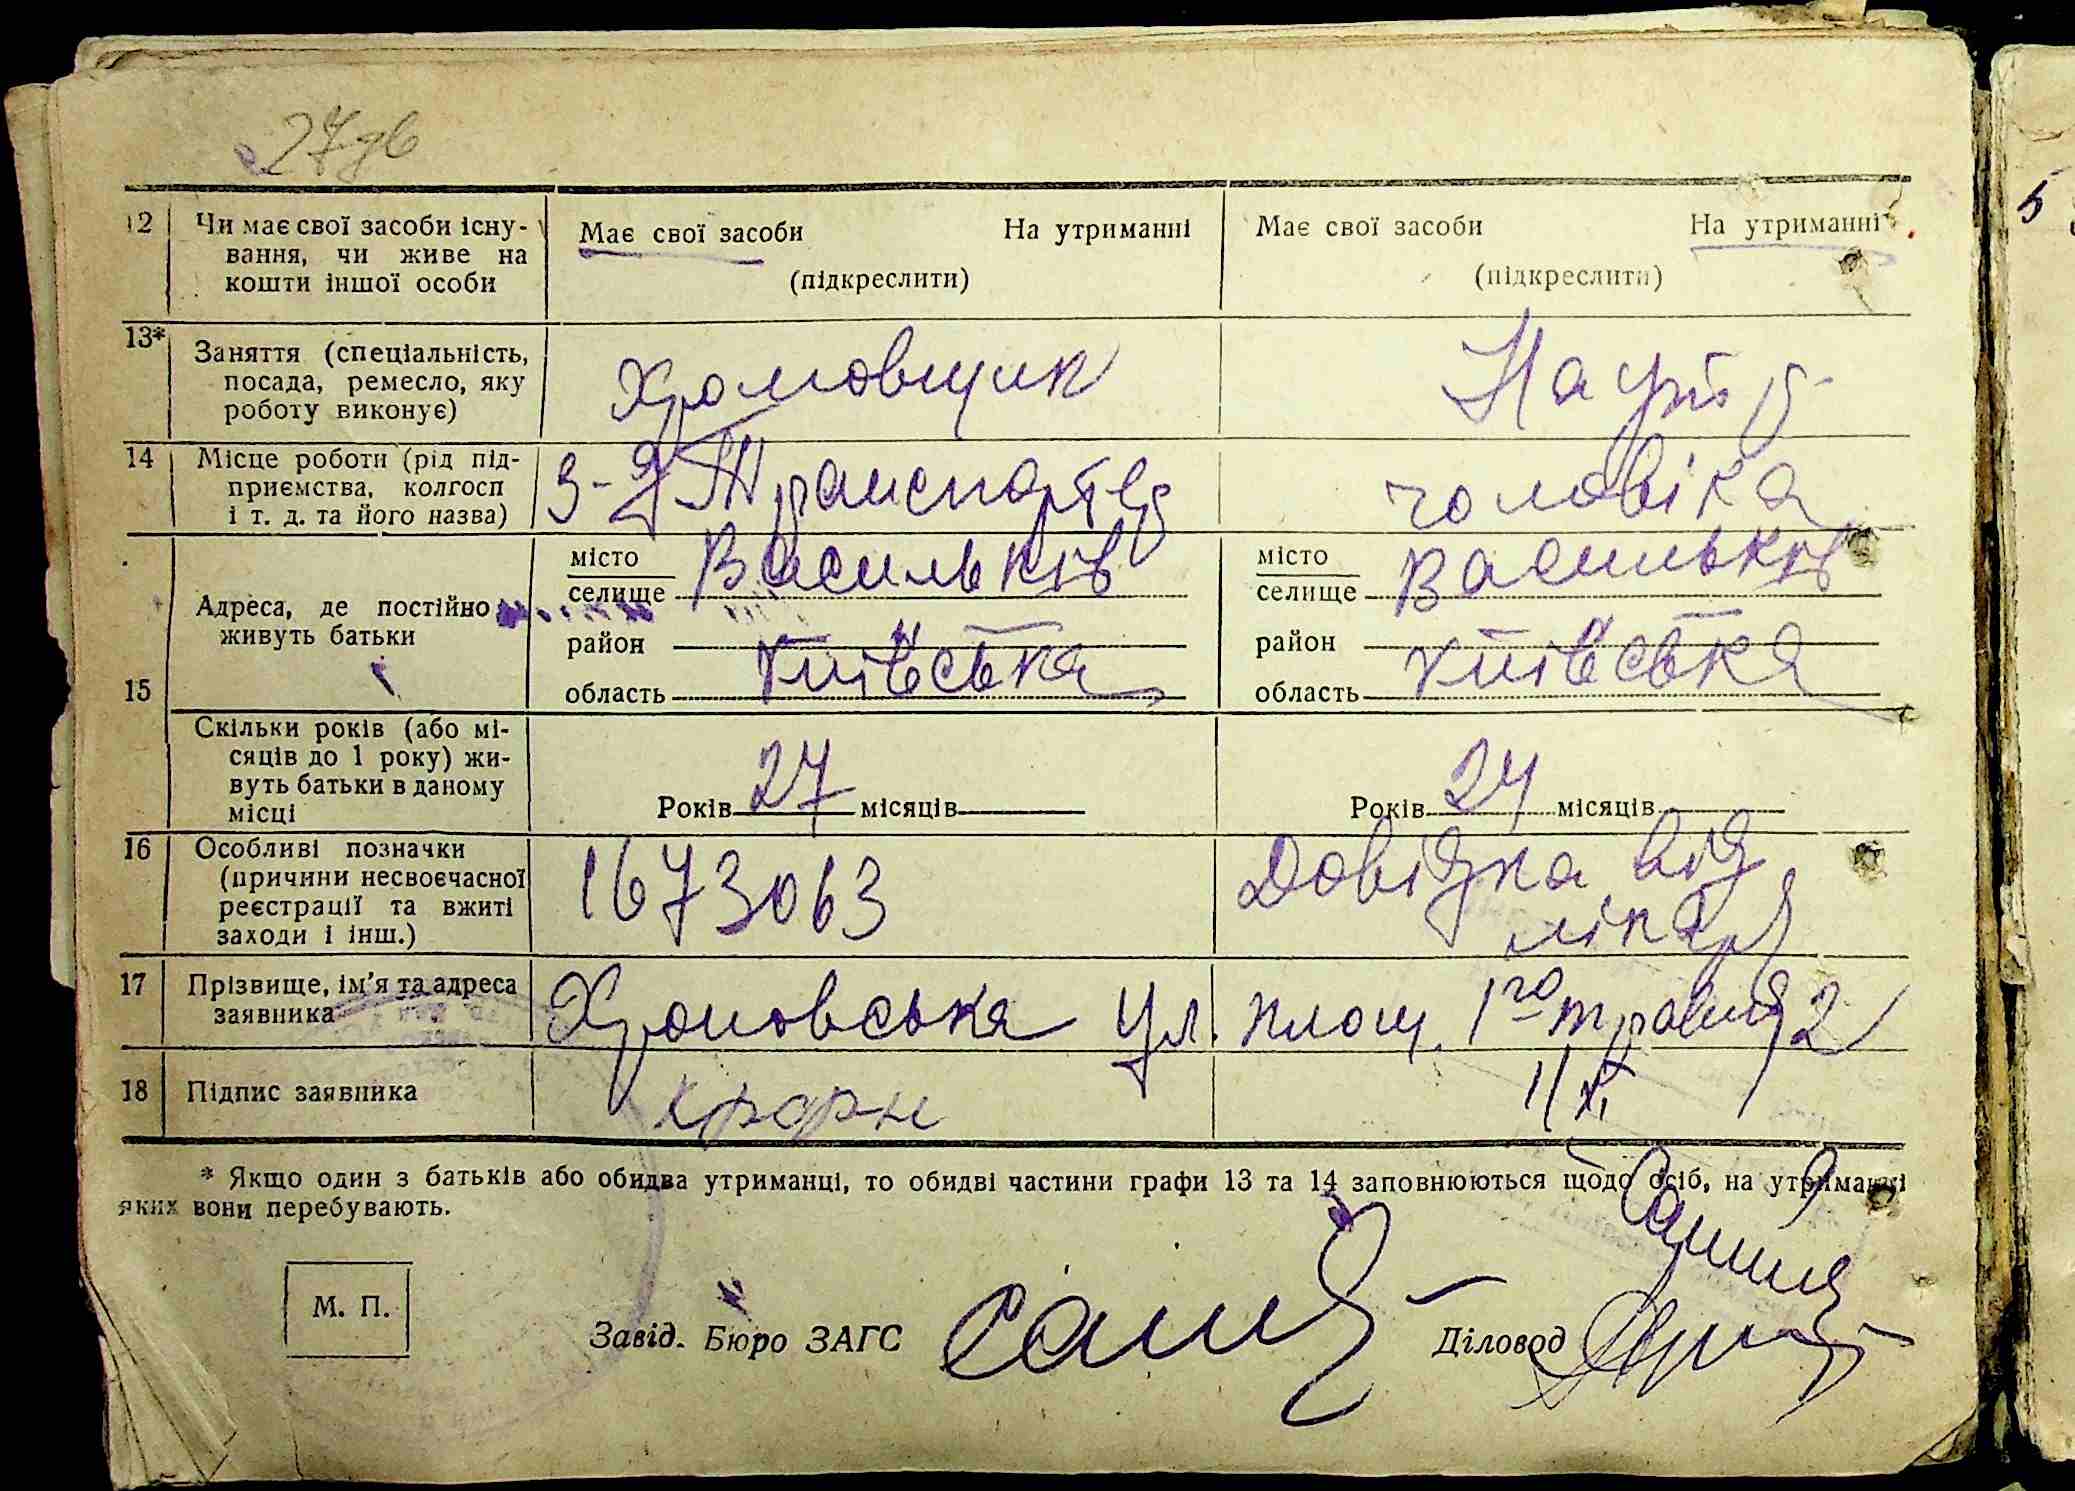 27дв
12 Чи має свої засоби існу- Має свої засоби На утриманні Має свої засоби На утриманні
вання, чи живе на (підкреслити) (підкреслити)
кошти іншої особи
13*
Заняття (спеціальність,
посада, ремесло, яку Хромовщик На утр.
роботу виконує)
14 Місце роботи (рід під-
приємства, колгосп чоловіка
і т. д. та його назва)
місто Васильків місто Васильків
Адреса, де постійно селище селище
живуть батьки район район
15 область Київська область Київська
Скільки років (або мі-
сяців до 1 року) жи-
вуть батьки в даному Років 27 місяців Років 24 місяців
місці
16 Особливі позначки
(причини несвоєчасної 1673063 Довідка від
реєстрації та вжиті лікаря
заходи і інш.)
17 Прізвище, ім'я та адреса Хроновська ул. площ. 1го травня 2
заявника
18 Підпис заявника
* Якщо один з батьків або обидва утриманці, то обидві частини графи 13 та 14 заповнюються щодо осіб, на утриманні
яких вони перебувають.
М. П.
Завід. Бюро ЗАГС Діловод
5